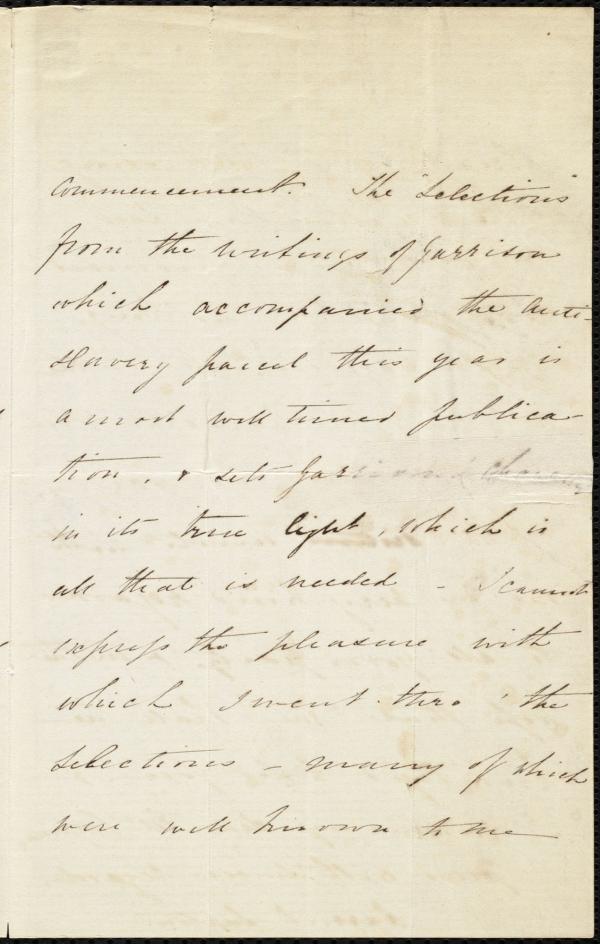 Commencement. The "Selections"
from the writings of Garrison
which accompanied the Anti-
slavery parcel this year is
a most well timed publica-
tion, & sets Garrison's
in its true light, which is
all that is needed - I cannot
express the pleasure with
which I went thro' the
selections - many of which
were well known to me